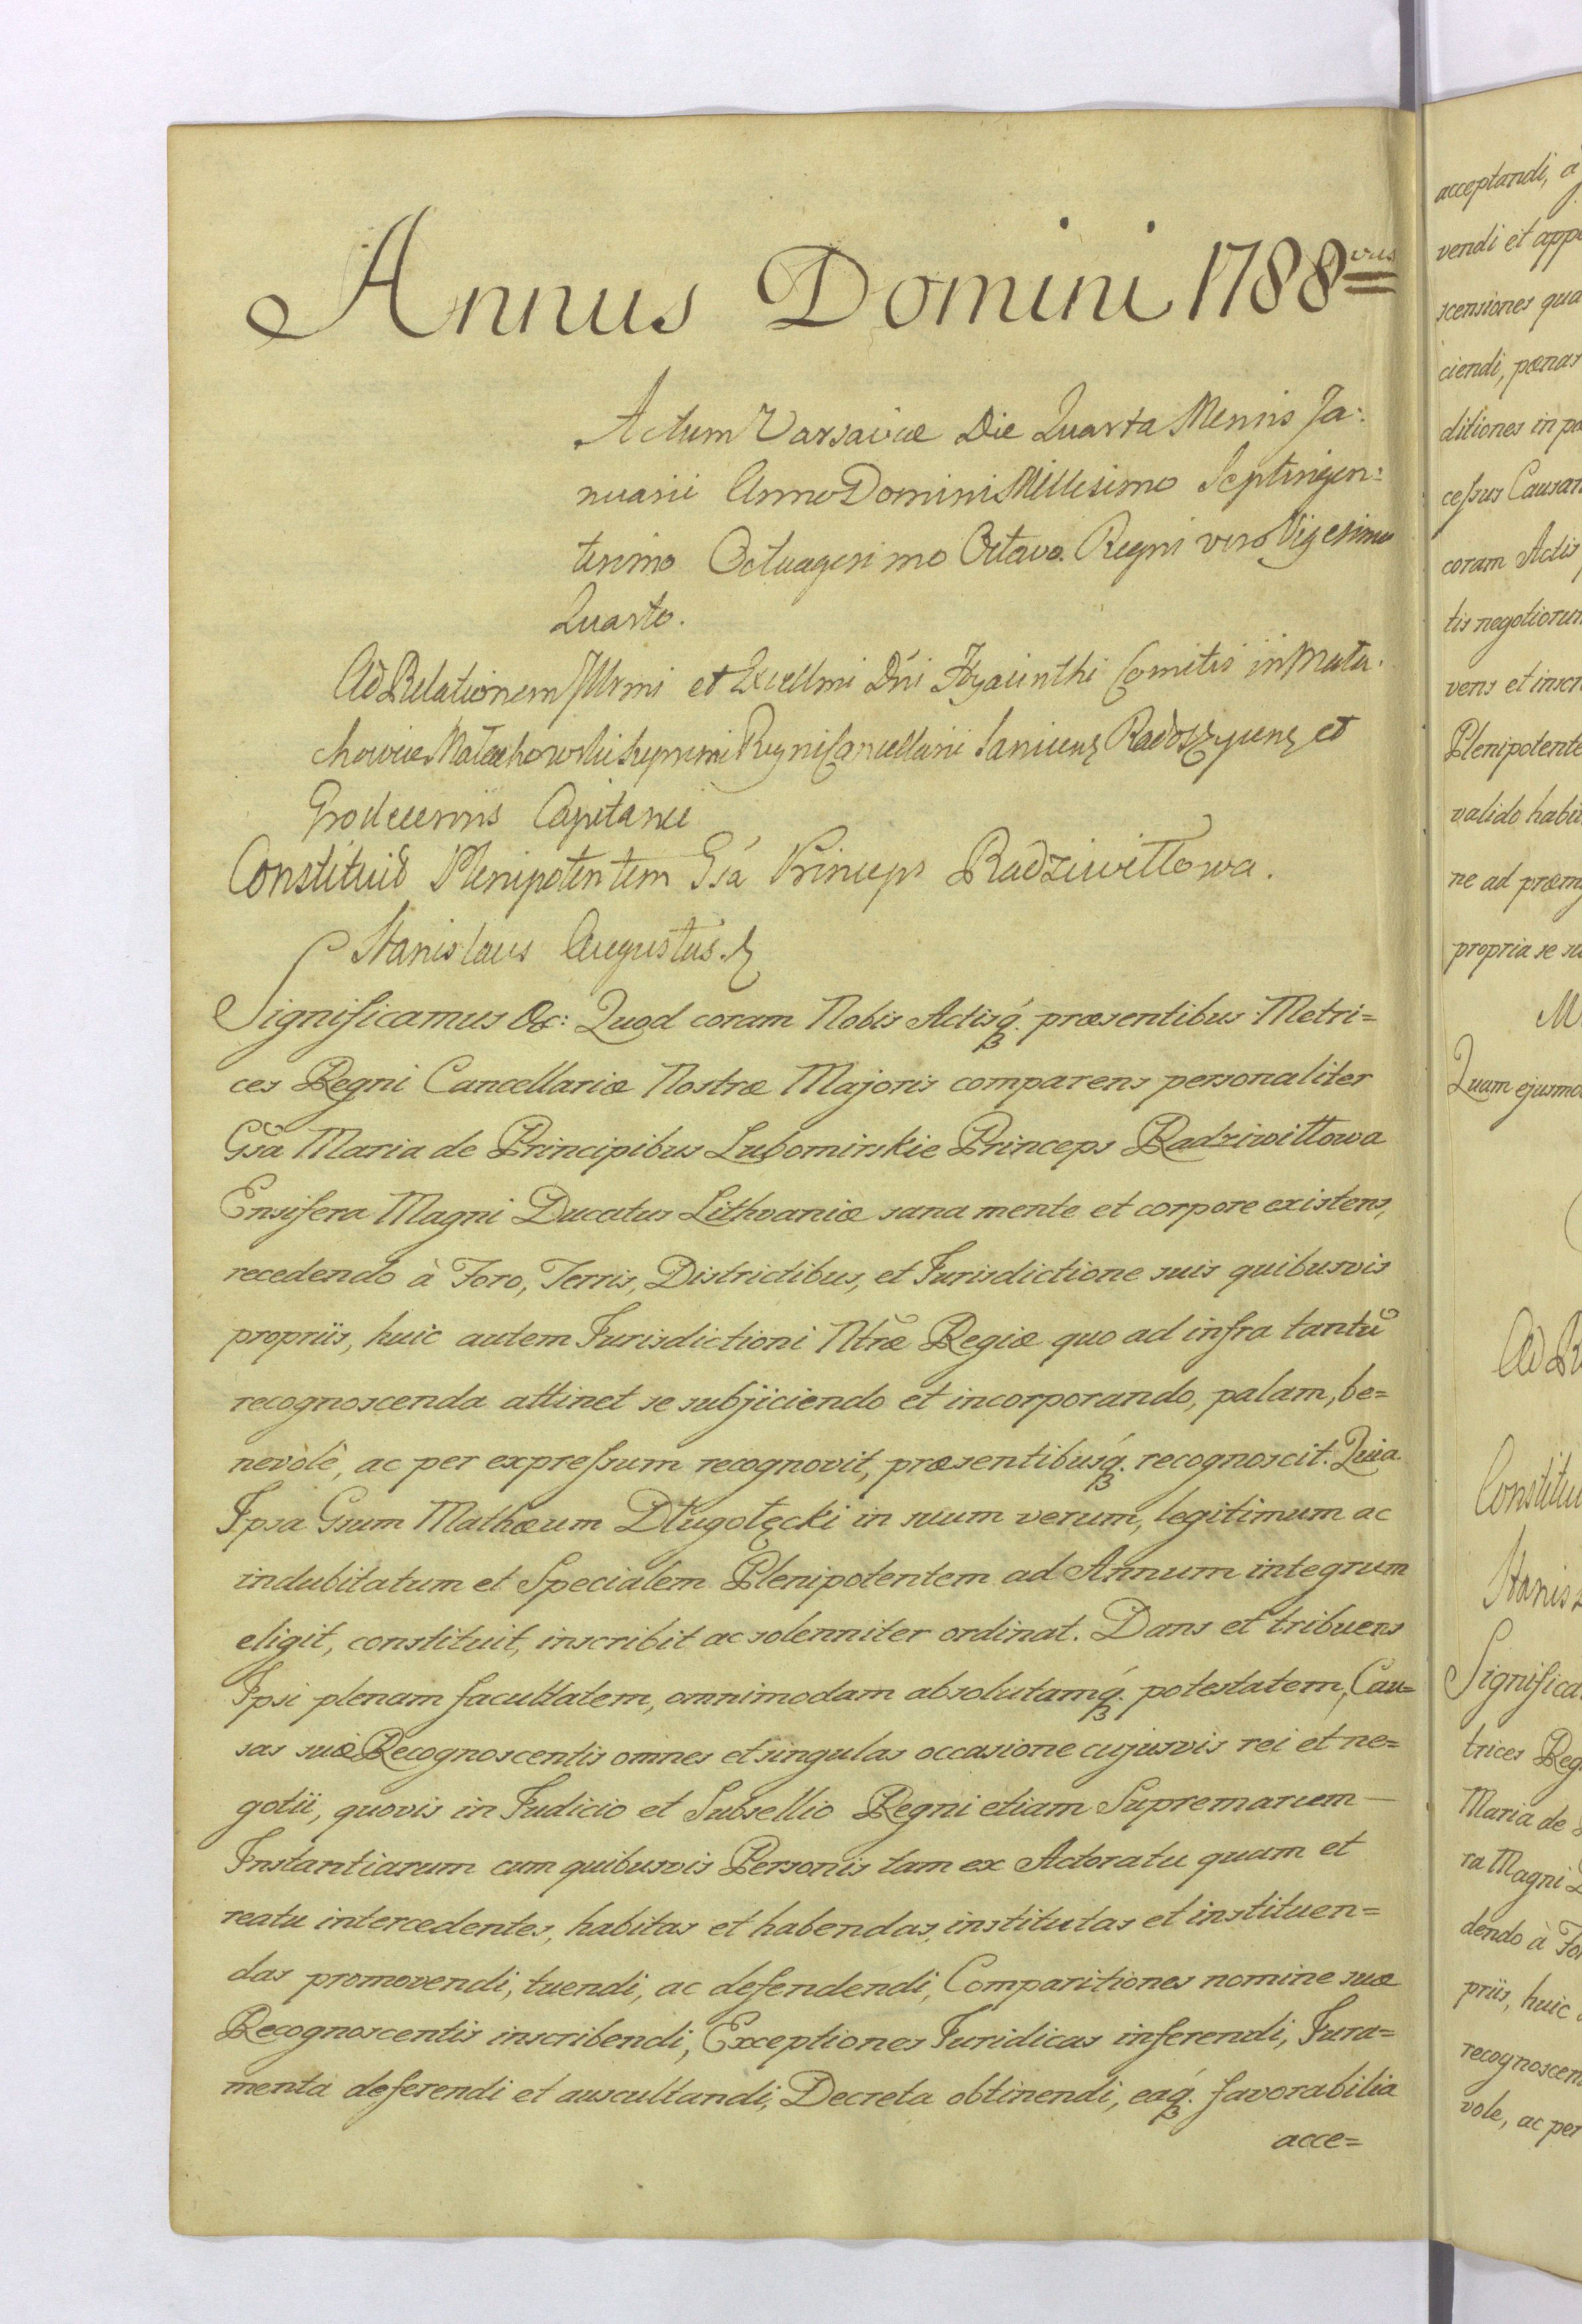 Annus Domini 1788vus
Actum Varsaviæ Die Quarta Mensis Ja:
nuarii Anno Domini Millesimo Septingen:
tesimo Octuagesimo Octavo. Regni vero Vigesimo
Quarto.
Ad Relationem Illrmi et Excellmi Dńi Hyacinthi Comitis in Mała:
chowice Małachowski Supremi Regni Cancellarii Radoszycens et
Grodecensis Capitanei
Constituit Plenipotentem Gsa Princeps Radziwiłłowa.
Stanislaus Augustus.
Significamus &c: Quod coram Nobis Actisq. præsentibus Metri=
ces Regni Cancellariæ Nostræ Majoris comparens personaliter
Gsa Maria de Principibus Lubomirskie Princeps Radziwiłłowa
Ensifera Magni Ducatus Lithvaniæ sana mente et corpore existens,
recedendo à Foro, Terris, Districtibus, et Jurisdictione suis quibusvis
propriis, huic autem Jurisdictioni Ntræ Regiæ quo ad infra tantū
recognoscenda attinet se subjiciendo et incorporando, palam, be=
nevòlè, ac per expressum recognovit, præsentibusq. recognoscit. Quia
Ipsa Gsum Mathæum Długołęcki in suum verum, legitimum ac
indubitatum et Specialem Plenipotentem ad Annum integrum
eligit, constituit, inscribit ac solenniter ordinat. Dans et tribuens
Ipsi plenam facultatem, omnimodam absolutamq. potestatem, Cau=
sas suæ Recognoscentis omnes et singulas occasione cujusvis rei et ne=
gotii, quovis in Judicio et Subsellio Regni etiam Supremarum
Instantiarum cum quibusvis Personis tam ex Actoratu quam et
reatu intercedentes, habitas et habendas, institutas et instituen=
das promovendi, tuendi, ac defendendi, Comparitiones nomine suæ
Recognoscentis inscribendi, Exceptiones Juridicas inferendi, Jura=
menta deferendi et auscultandi, Decreta obtinendi, eáq. favorabilia
acce=
acceptandi, a
vendi et app
scensiones qua
ciendi, pænas
ditiones in po
cessus Causar
coram Actis
tis negotiorum
vens et inscr
Plenipotente
valido habi
ne ad præm
propria se su
M
Quam ejusmo
Ad R
Constitu
Stanis
Significa
trices Reg
Maria de
ra Magni
dendo à Fo
priis, huic
recognoscen
vole, ac per